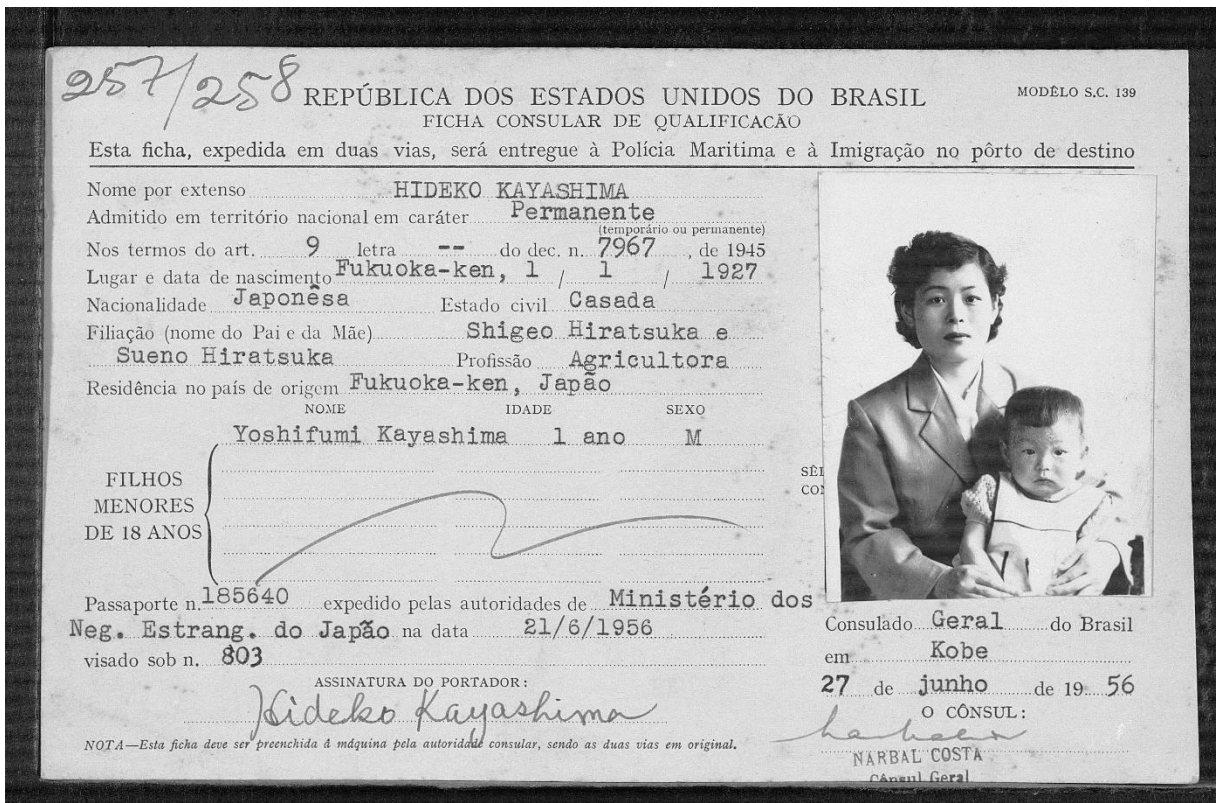 257/258
REPÚBLICA DOS ESTADOS UNIDOS DO BRASIL
MODÊLO S.C. 139
FICHA CONSULAR DE QUALIFICACÃO
Esta ficha, expedida em duas vias, será entregue à Polícia Maritima e à Imigração no pôrto de destino
Nome por extenso HIDEKO KAYASHIMA
Admitido em território nacional em caráter Permanente
(temporário ou permanente)
Nos termos do art. 9 letra -- do dec. n. 7967, de 1945
Lugar e data de nascimento Fukuoka-ken, 1 / 1 / 1927
Nacionalidade Japonêsa Estado civil Casada
Filiação (nome do Pai e da Mãe) Shigeo Hiratsuka e
Sueno Hiratsuka Profissão Agricultora
Residência no país de origem Fukuoka-ken, Japão
NOME IDADE SEXO
Yoshifumi Kayashima 1 ano M
FILHOS
MENORES
DE 18 ANOS
Passaporte n. 185640 expedido pelas autoridades de Ministério dos
Neg. Estrang. do Japão na data 21/6/1956
visado sob n. 803
ASSINATURA DO PORTADOR:
Hideko Kayashima
NOTA—Esta ficha deve ser preenchida á máquina pela autoridade consular, sendo as duas vias em original.
Consulado Geral do Brasil
em Kobe
27 de junho de 19 56
O CÔNSUL:
NARBAL COSTA
Cônsul Geral